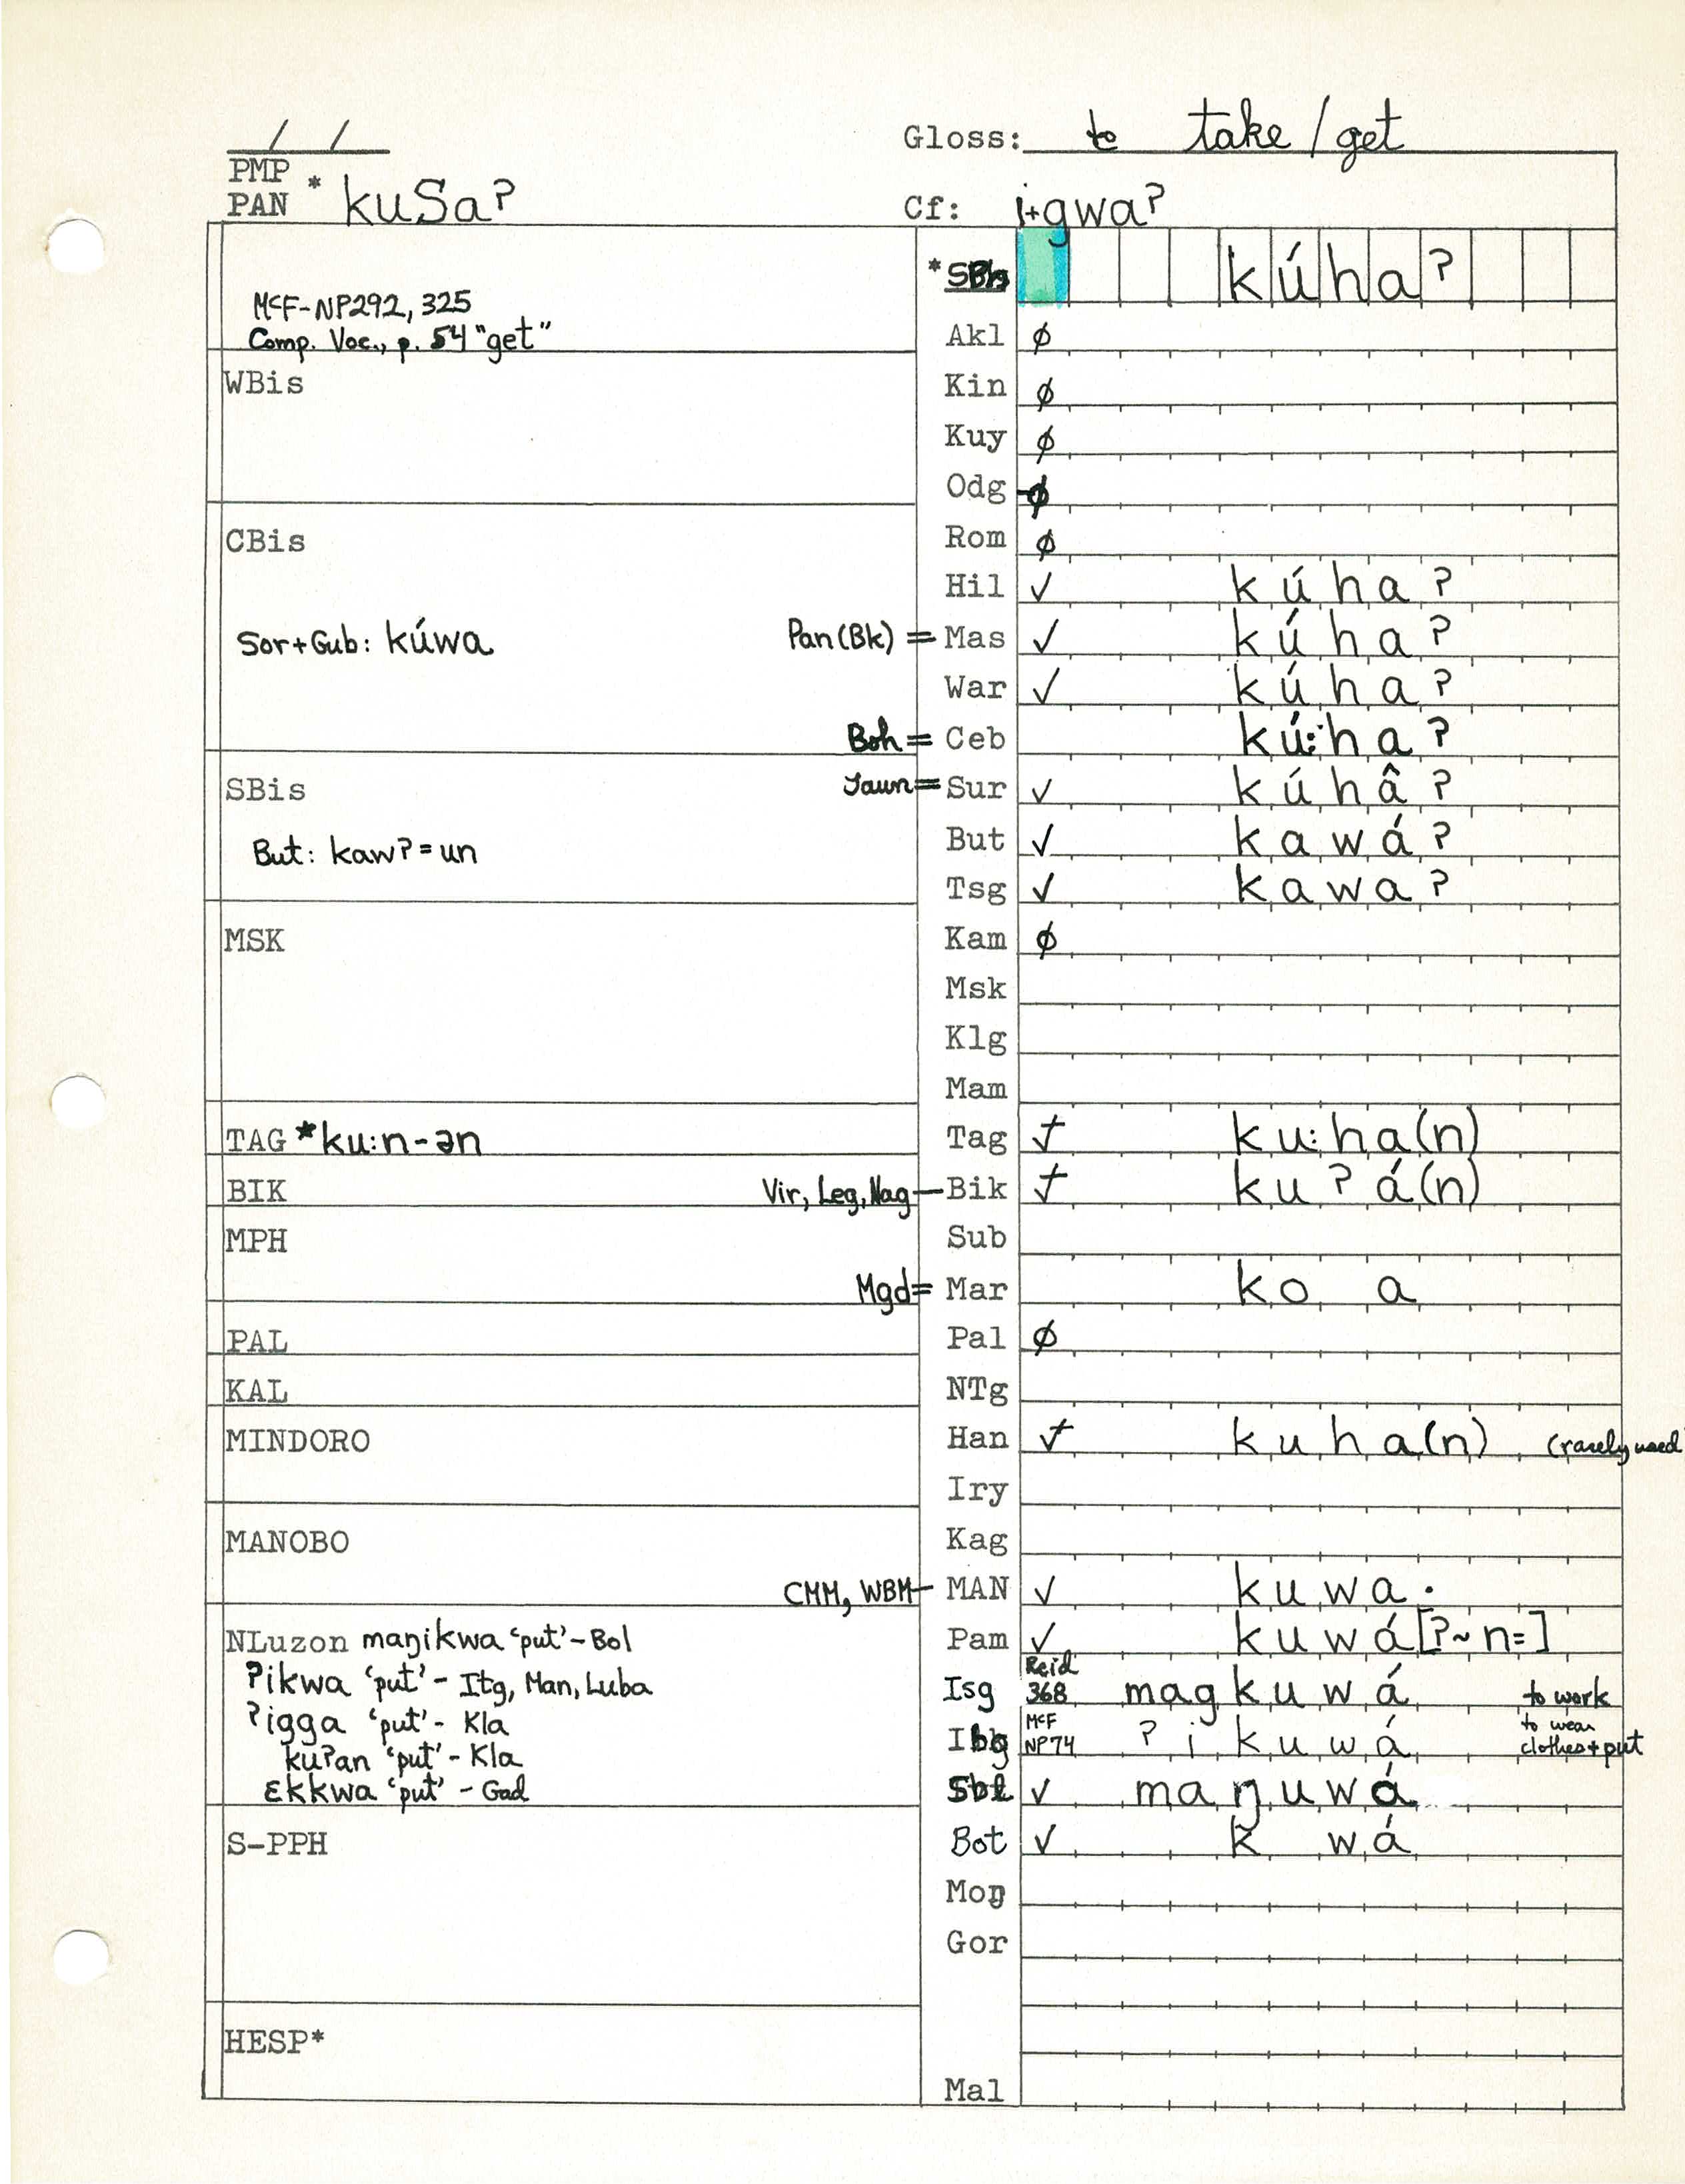 / /
Gloss: to take/get
PMP
PAN * kuSaʔ
Cf: i+gwaʔ
*SBis kúhaʔ
McF-NP292, 325
Comp. Voc., p. 54 "get"
Akl ∅
WBis
Kin ∅
Kuy ∅
Odg ∅
CBis
Rom ∅
Hil ✓ kúhaʔ
Sor+Gub: kúwa
Pan(Bk) = Mas ✓ kúhaʔ
War ✓ kúhaʔ
Boh = Ceb kú:haʔ
SBis
Jaun = Sur ✓ kúhâʔ
But: kawʔ=un
But ✓ kawáʔ
Tsg ✓ kawaʔ
MSK
Kam ∅
Msk
Klg
Mam
TAG *ku:n-ən
Tag ✓ ku:ha(n)
BIK
Vir, Leg, Nag – Bik ✓ kuʔá(n)
MPH
Sub
Mgd = Mar ko a
PAL
Pal ∅
KAL
NTg
MINDORO
Han ✓ kuha(n) (rarely used)
Iry
MANOBO
Kag
CMM, WBM – MAN ✓ kuwa.
NLuzon maŋikwa 'put' - Bol
Pam ✓ kuwá[ʔ~n=]
ʔikwa 'put' - Itg, Man, Luba
Isg Reid 368 magkuwá to work
ʔigga 'put' - Kla
Ibg McF NP74 ʔikuwá to wear clothes + put
kuʔan 'put' - Kla
ɛkkwa 'put' - Gad
Sbl ✓ maŋuwá
S-PPH
Bot ✓ k wá
Moŋ
Gor
HESP*
Mal